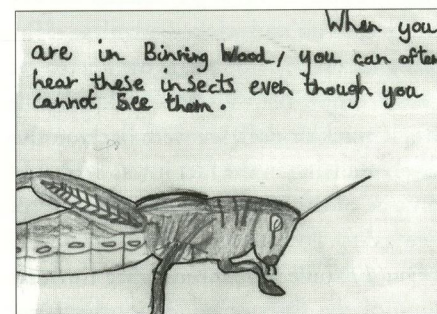 When you
are in Binning Wood, you can often
hear these insects even though you
cannot See them.